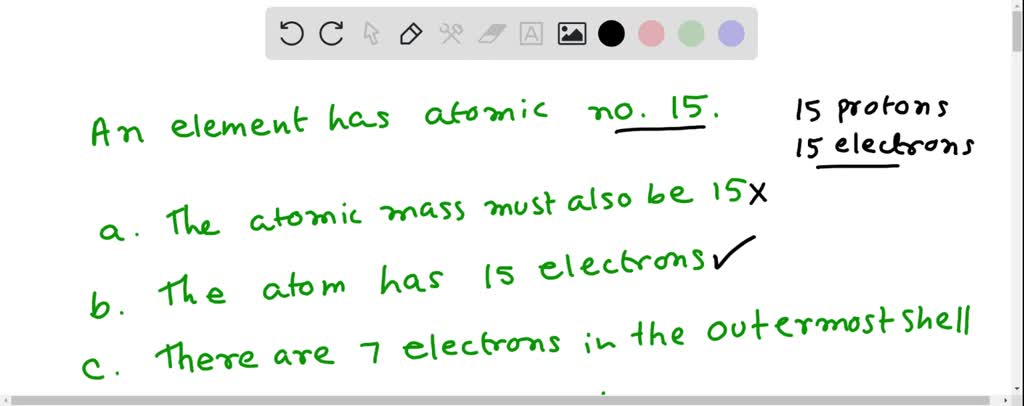 A
An element has atomic no. 15.
15 protons
15 electrons
a. The atomic mass must also be 15 x
b. The atom has 15 electrons ✓
c. There are 7 electrons in the outermost shell